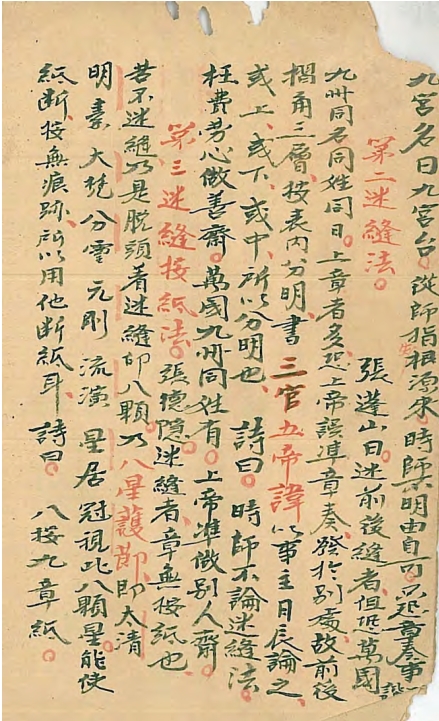 九宮名曰九宮台。從師指根源來、時師明由自可。只恐章奏事
第二迷縫法。張蓬山曰迷前後縫者、但恐萬國
九州同名同姓同日。上章者多恐上帝誤準章奏、發於別處、故前後
摺角三層、按表内分明、書三官五帝諱以事主日辰論之、
或上、或下、或中、所以分明也、詩曰。時師不論迷縫法。
枉費勞心做善齋。萬國九州同姓有。上帝准做別人齋。
第三迷縫接紙法。張德隱。迷縫者章無接紙也、
若不迷縫乃是脫頭着迷縫印八顆。乃八星護節、即太清
明素大梵分靈元剛流演星居冠視此八顆星。能使
紙斷、接無痕跡、所以用他斷紙耳、詩曰。八接九章紙。